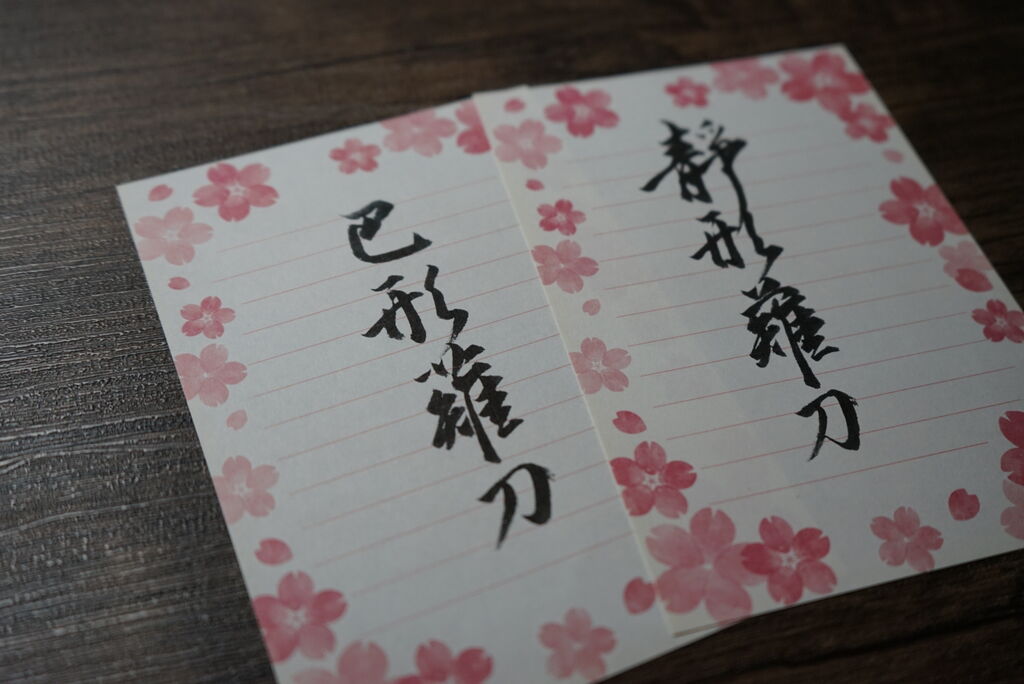 静形薙刀
巴形薙刀